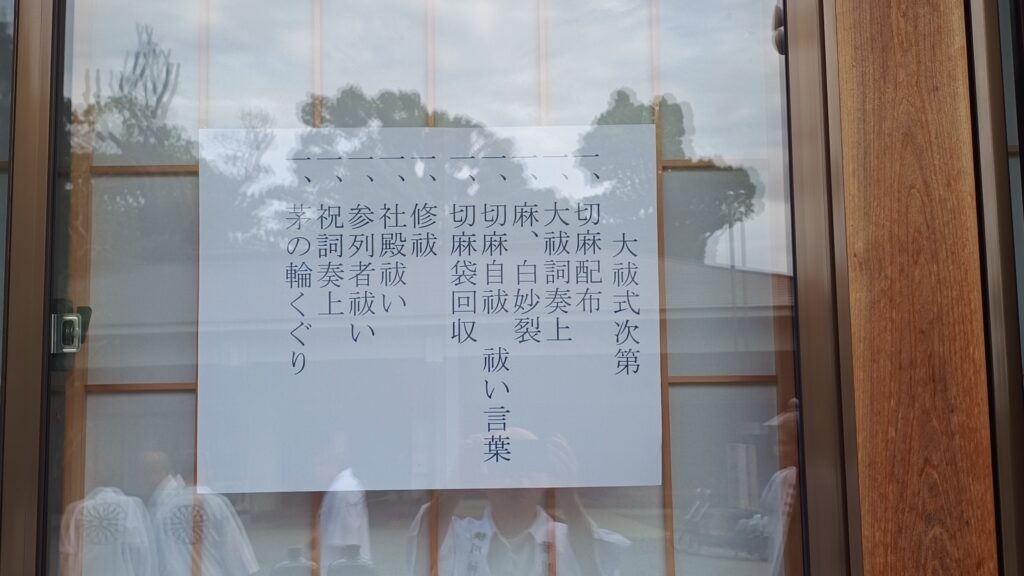 大祓式次第
一、切麻配布
一、大祓詞奏上
一、麻、白妙裂
一、切麻自祓 祓い言葉
一、切麻袋回収
一、修祓
一、社殿祓い
一、参列者祓い
一、祝詞奏上
一、茅の輪くぐり